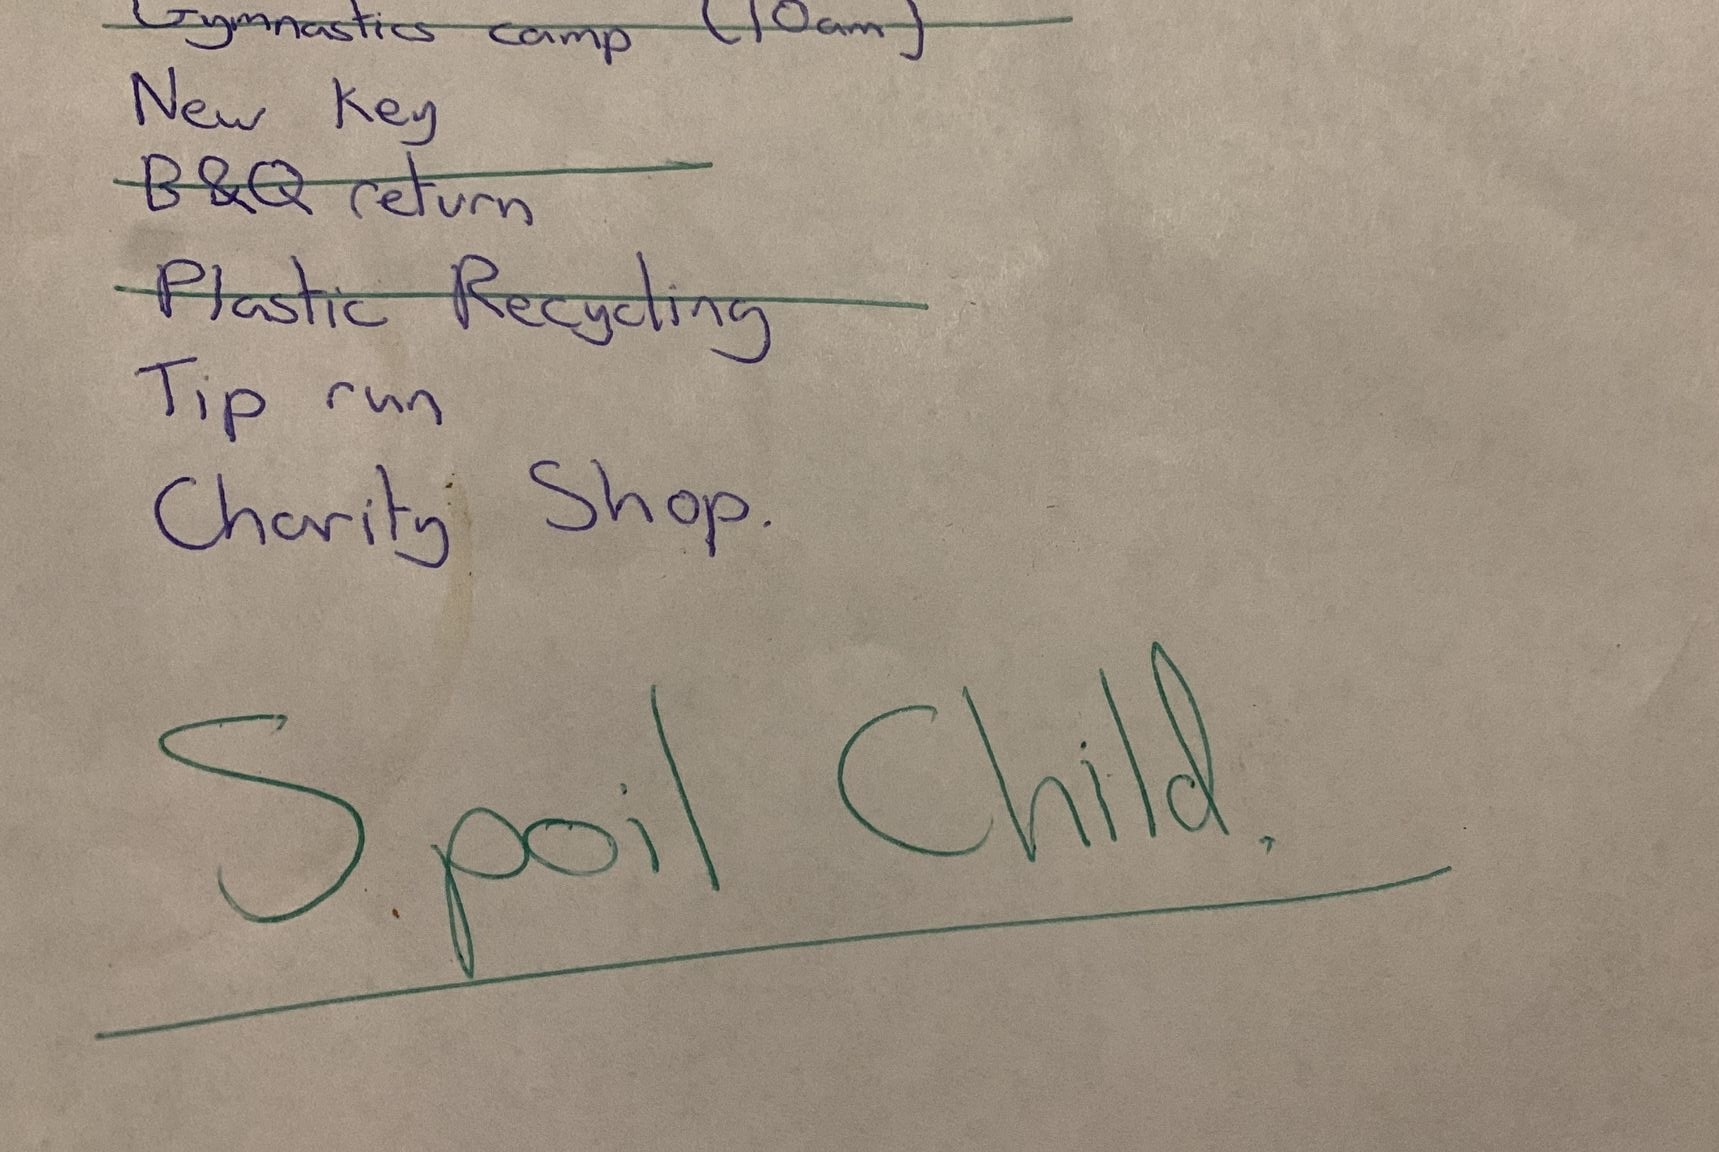 Gymnastics camp (10am)
New Key
B&Q return
Plastic Recycling
Tip run
Charity Shop.
Spoil Child.